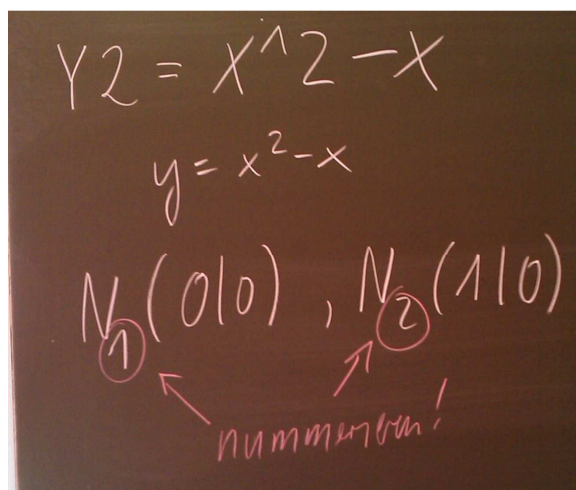 Y2 = X^2 - X
y = x² - x
N₁ (0|0) , N₂ (1|0)
nummerieren!